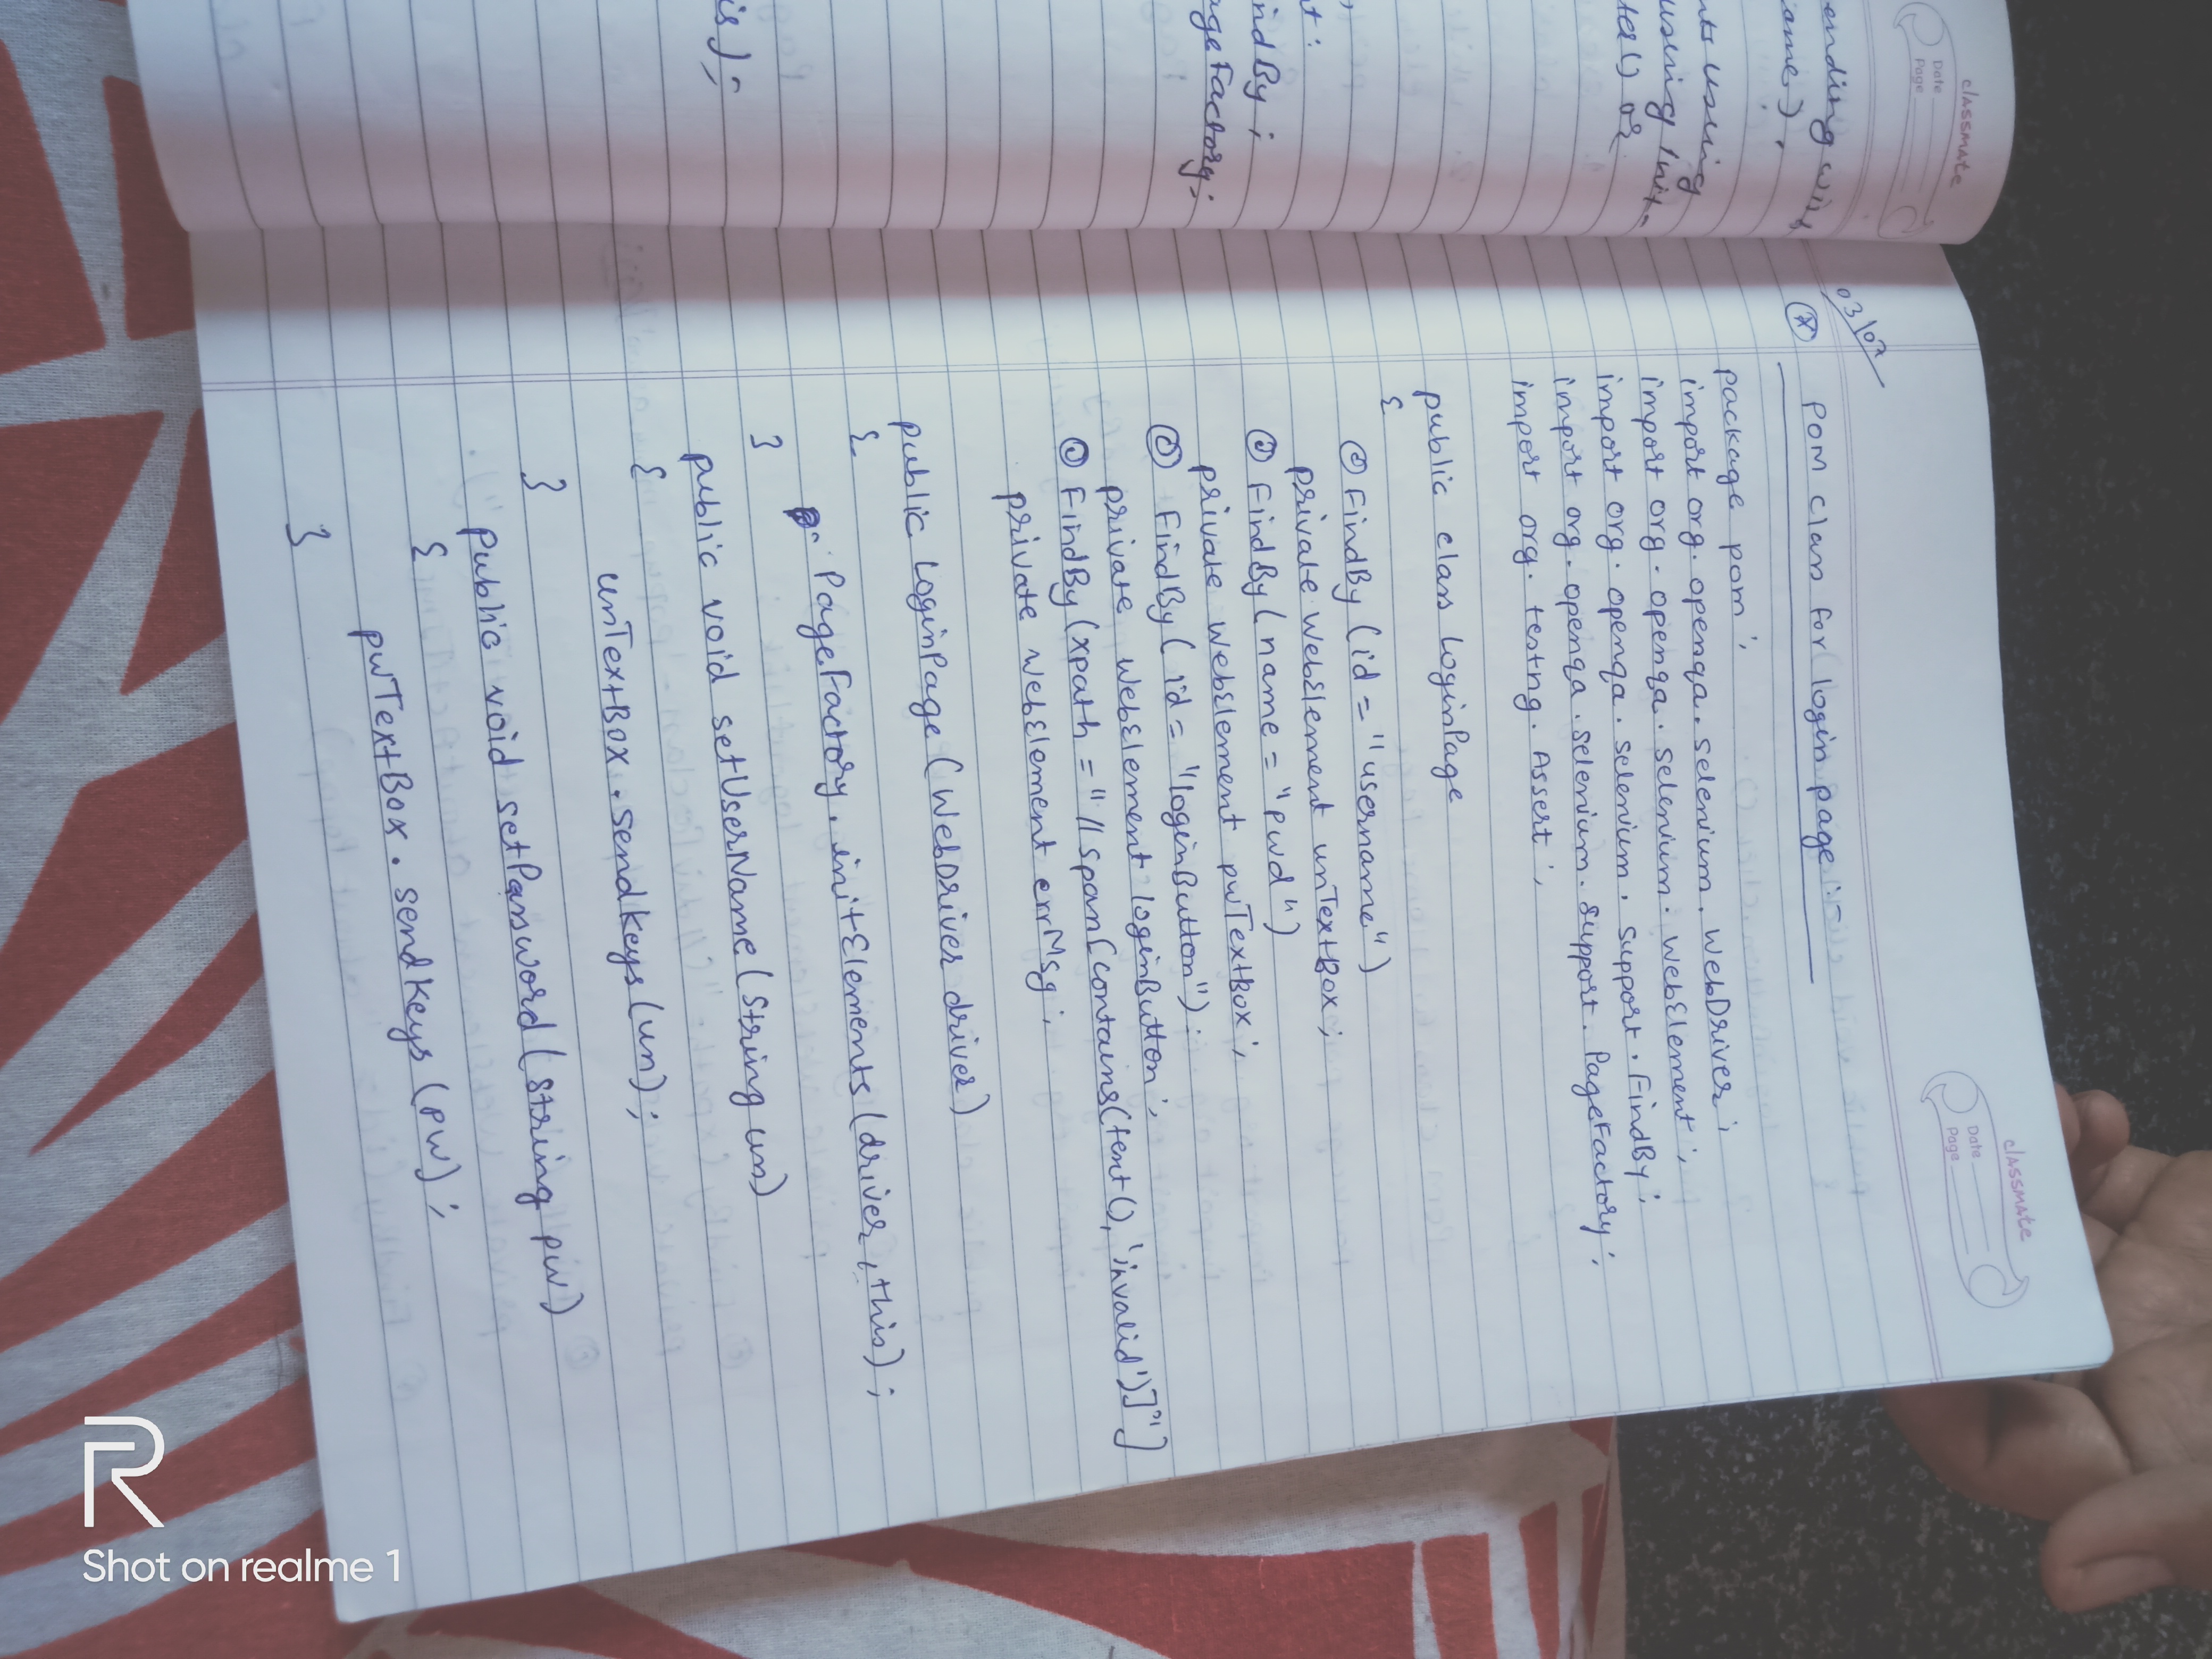 classmate
Date
Page
ending with
ame).
nts using
using Init-
ter() or
t:
ndBy;
ageFactory;
is);
classmate
Date
Page
03/07
POM class for login page :-
package pom;
import org.openqa.selenium.WebDriver;
import org.openqa.selenium.WebElement;
import org.openqa.selenium.support.FindBy;
import org.openqa.selenium.support.PageFactory;
import org.testng.Assert;
public class LoginPage
{
@ FindBy (id = "username")
private WebElement unTextBox;
@ FindBy (name = "pwd")
private WebElement pwTextBox;
@ FindBy ( id = "loginButton");
private WebElement loginButton;
@ FindBy (xpath = "//span[contains(text(), 'invalid')]"]
private WebElement errMsg;
public LoginPage (WebDriver driver)
{
PageFactory.initElements (driver, this);
}
public void setUserName (String un)
{
unTextBox.sendkeys (un);
}
public void setPassword (String pw)
{
pwTextBox.sendkeys (pw);
}
R
Shot on realme 1